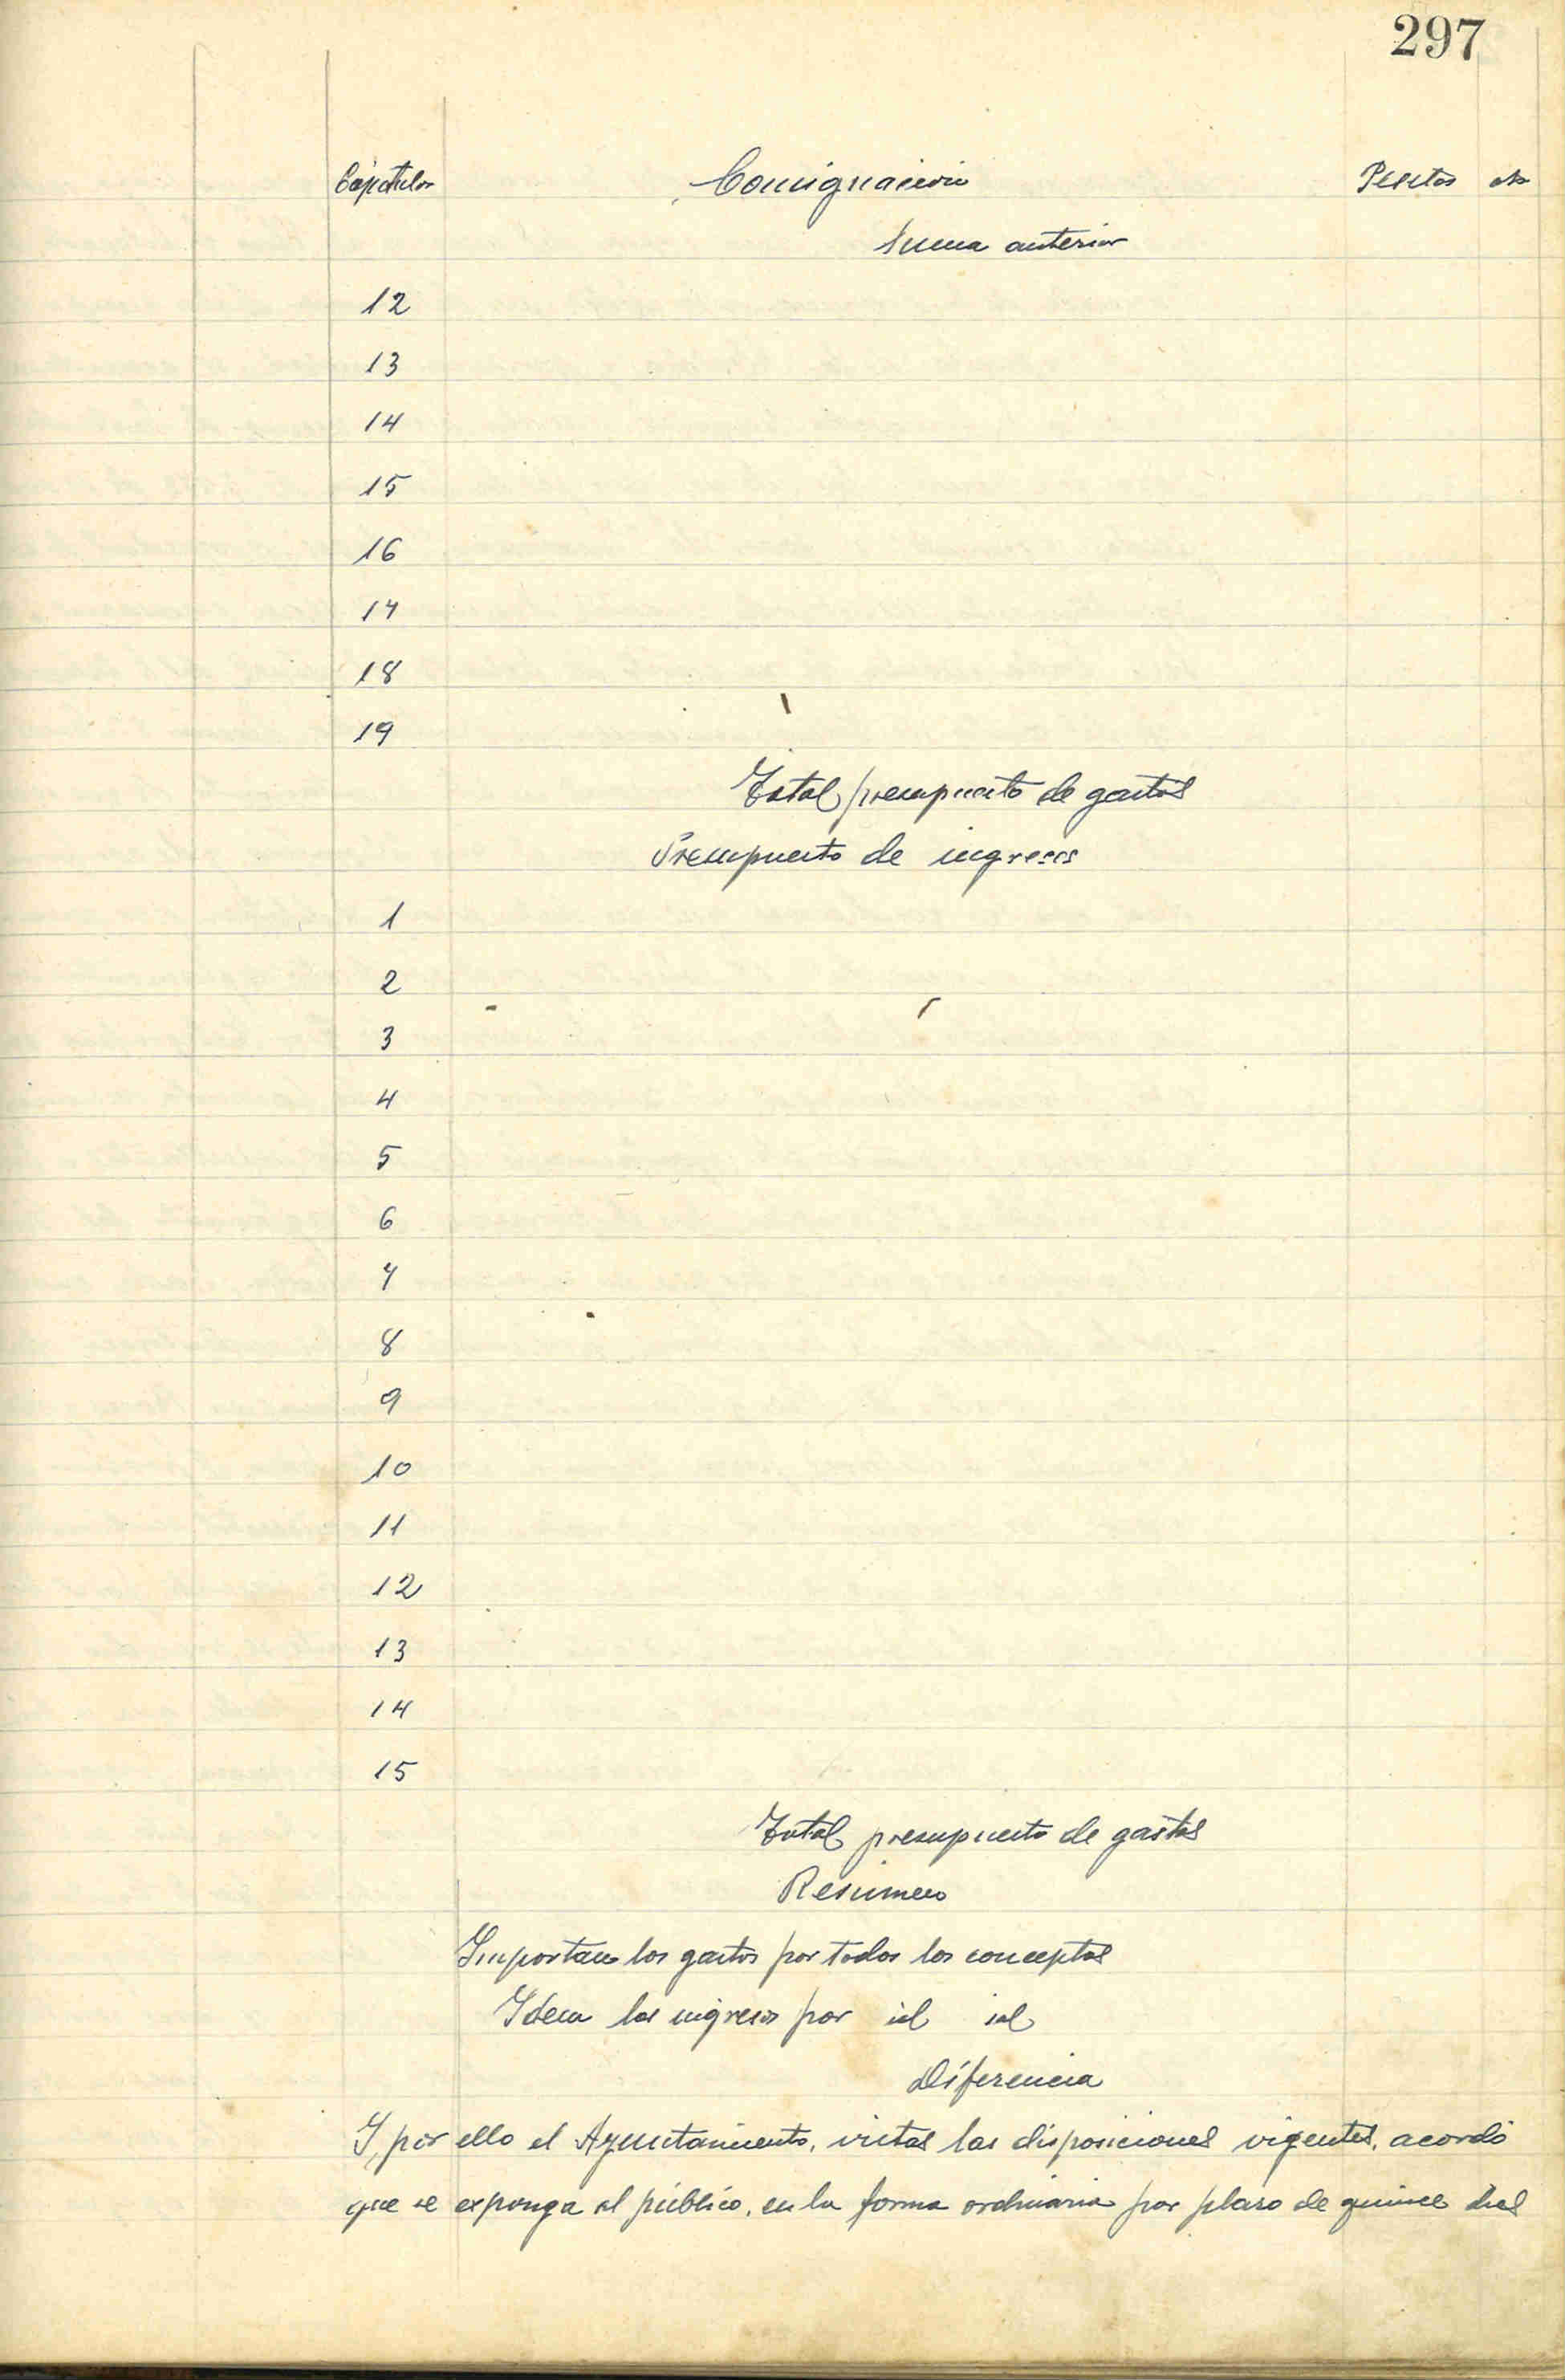 297
Capítulos Consignación Pesetas cts
Suma anterior
12
13
14
15
16
17
18
19
Total presupuesto de gastos
Presupuesto de ingresos
1
2
3
4
5
6
7
8
9
10
11
12
13
14
15
Total presupuesto de gastos
Resumen
Importan los gastos por todos los conceptos
Idem los ingresos por id id
Diferencia
Y, por ello el Ayuntamiento, vistas las disposiciones vigentes, acordó
que se exponga al público, en la forma ordinaria por plazo de quince dias